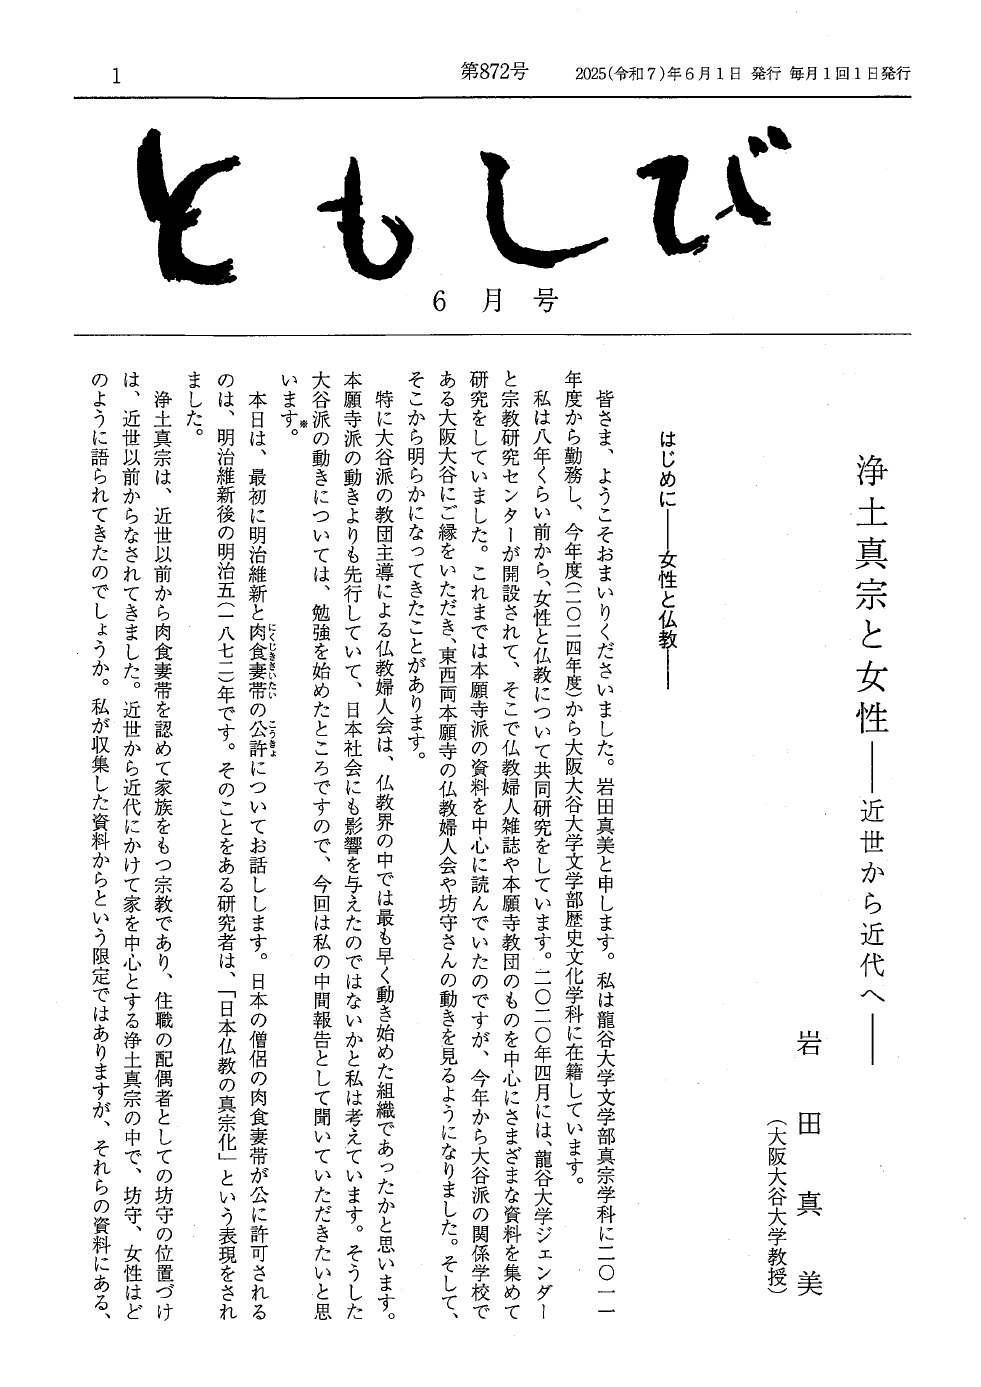 1
第872号
2025(令和7)年6月1日 発行 毎月1回1日発行
ともしび
6月号
浄土真宗と女性——近世から近代へ——
岩田真美
(大阪大谷大学教授)
はじめに——女性と仏教——
皆さま、ようこそおまいりくださいました。岩田真美と申します。私は龍谷大学文学部真宗学科に二〇一一
年度から勤務し、今年度(二〇二四年度)から大阪大谷大学文学部歴史文化学科に在籍しています。
私は八年くらい前から、女性と仏教について共同研究をしています。二〇二〇年四月には、龍谷大学ジェンダー
と宗教研究センターが開設されて、そこで仏教婦人雑誌や本願寺教団のものを中心にさまざまな資料を集めて
研究をしていました。これまでは本願寺派の資料を中心に読んでいたのですが、今年から大谷派の関係学校で
ある大阪大谷にご縁をいただき、東西両本願寺の仏教婦人会や坊守さんの動きを見るようになりました。そして、
そこから明らかになってきたことがあります。
特に大谷派の教団主導による仏教婦人会は、仏教界の中では最も早く動き始めた組織であったかと思います。
本願寺派の動きよりも先行していて、日本社会にも影響を与えたのではないかと私は考えています。そうした
大谷派の動きについては、勉強を始めたところですので、今回は私の中間報告として聞いていただきたいと思
います。※
本日は、最初に明治維新と肉食妻帯(にくじきさいたい)の公許(こうきょ)についてお話しします。日本の僧侶の肉食妻帯が公に許可される
のは、明治維新後の明治五(一八七二)年です。そのことをある研究者は、「日本仏教の真宗化」という表現をされ
ました。
浄土真宗は、近世以前から肉食妻帯を認めて家族をもつ宗教であり、住職の配偶者としての坊守の位置づけ
は、近世以前からなされてきました。近世から近代にかけて家を中心とする浄土真宗の中で、坊守、女性はど
のように語られてきたのでしょうか。私が収集した資料からという限定ではありますが、それらの資料にある、